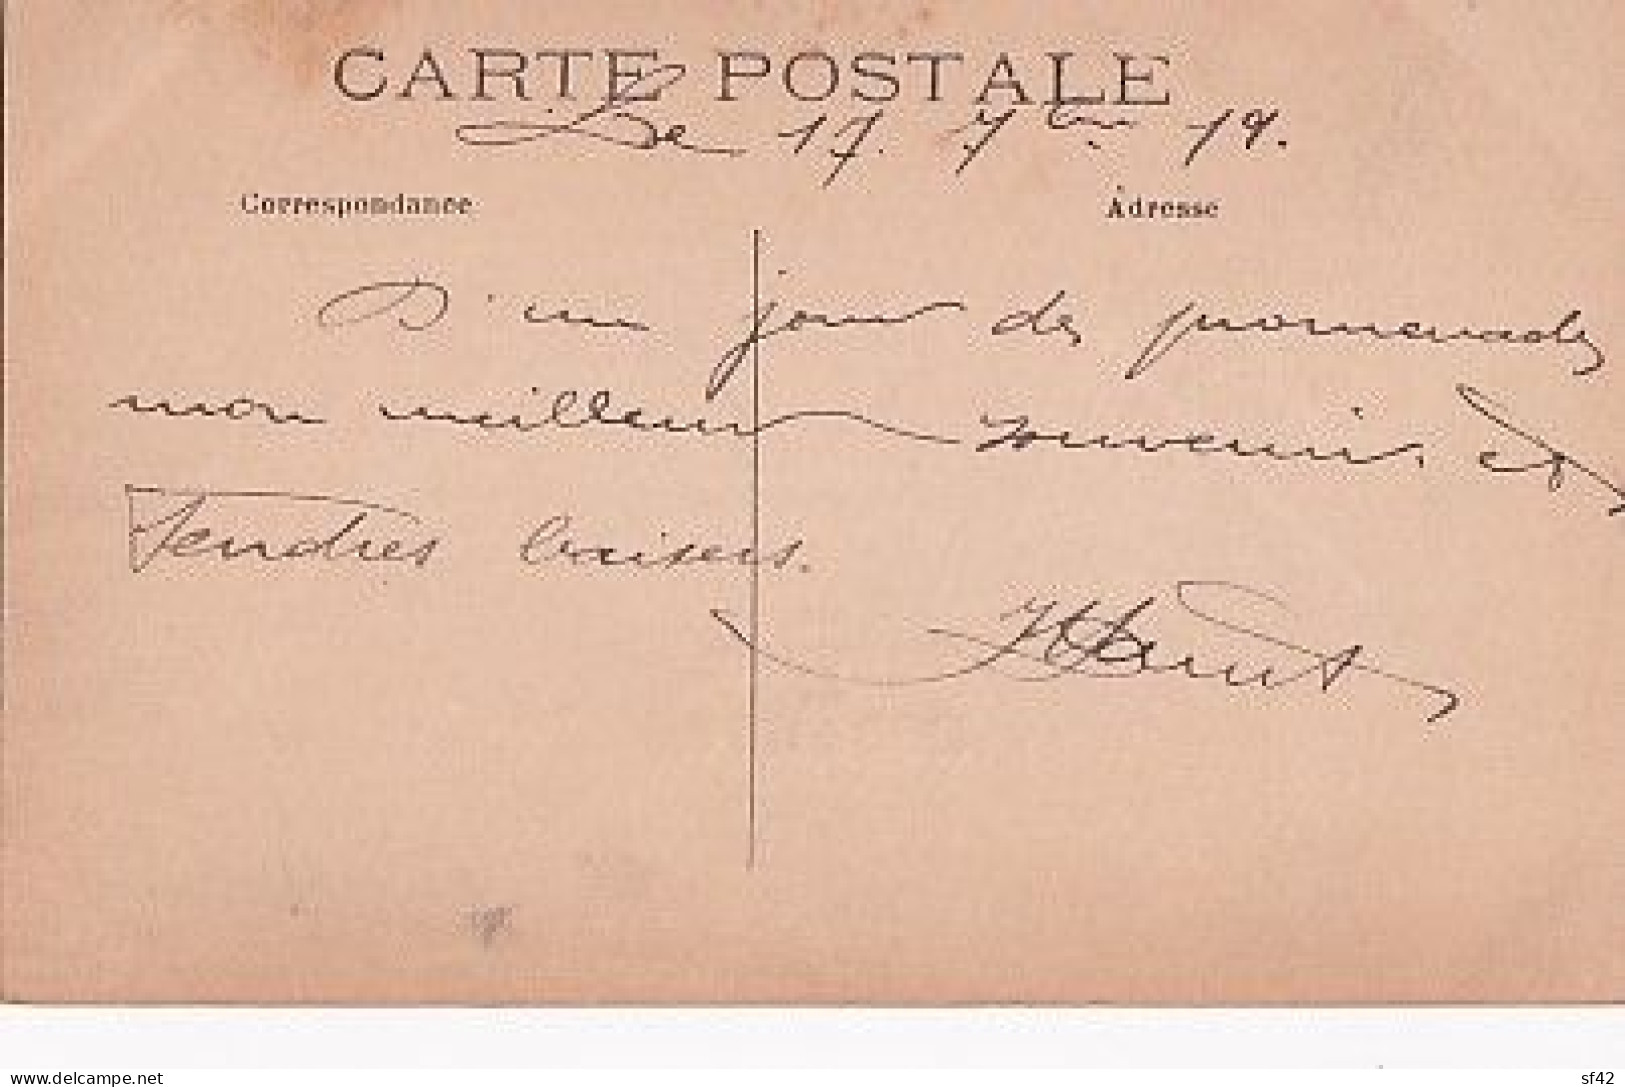 CARTE POSTALE
Le 17. 7bre 19.
Correspondance
Adresse
D'un jour des promenades
mon meilleur souvenir. et
tendres baisers.
www.delcampe.net
sf42